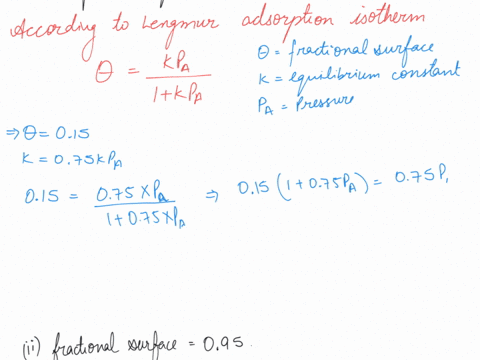 According to Lengmur adsorption isotherm
θ = KPA / 1+KPA
θ = fractional surface
K = equilibrium constant
PA = Pressure
⇒ θ = 0.15
K = 0.75kPA
0.15 = 0.75 × PA / 1+0.75×PA ⇒ 0.15 (1+0.75PA) = 0.75P
(ii) fractional surface = 0.95.